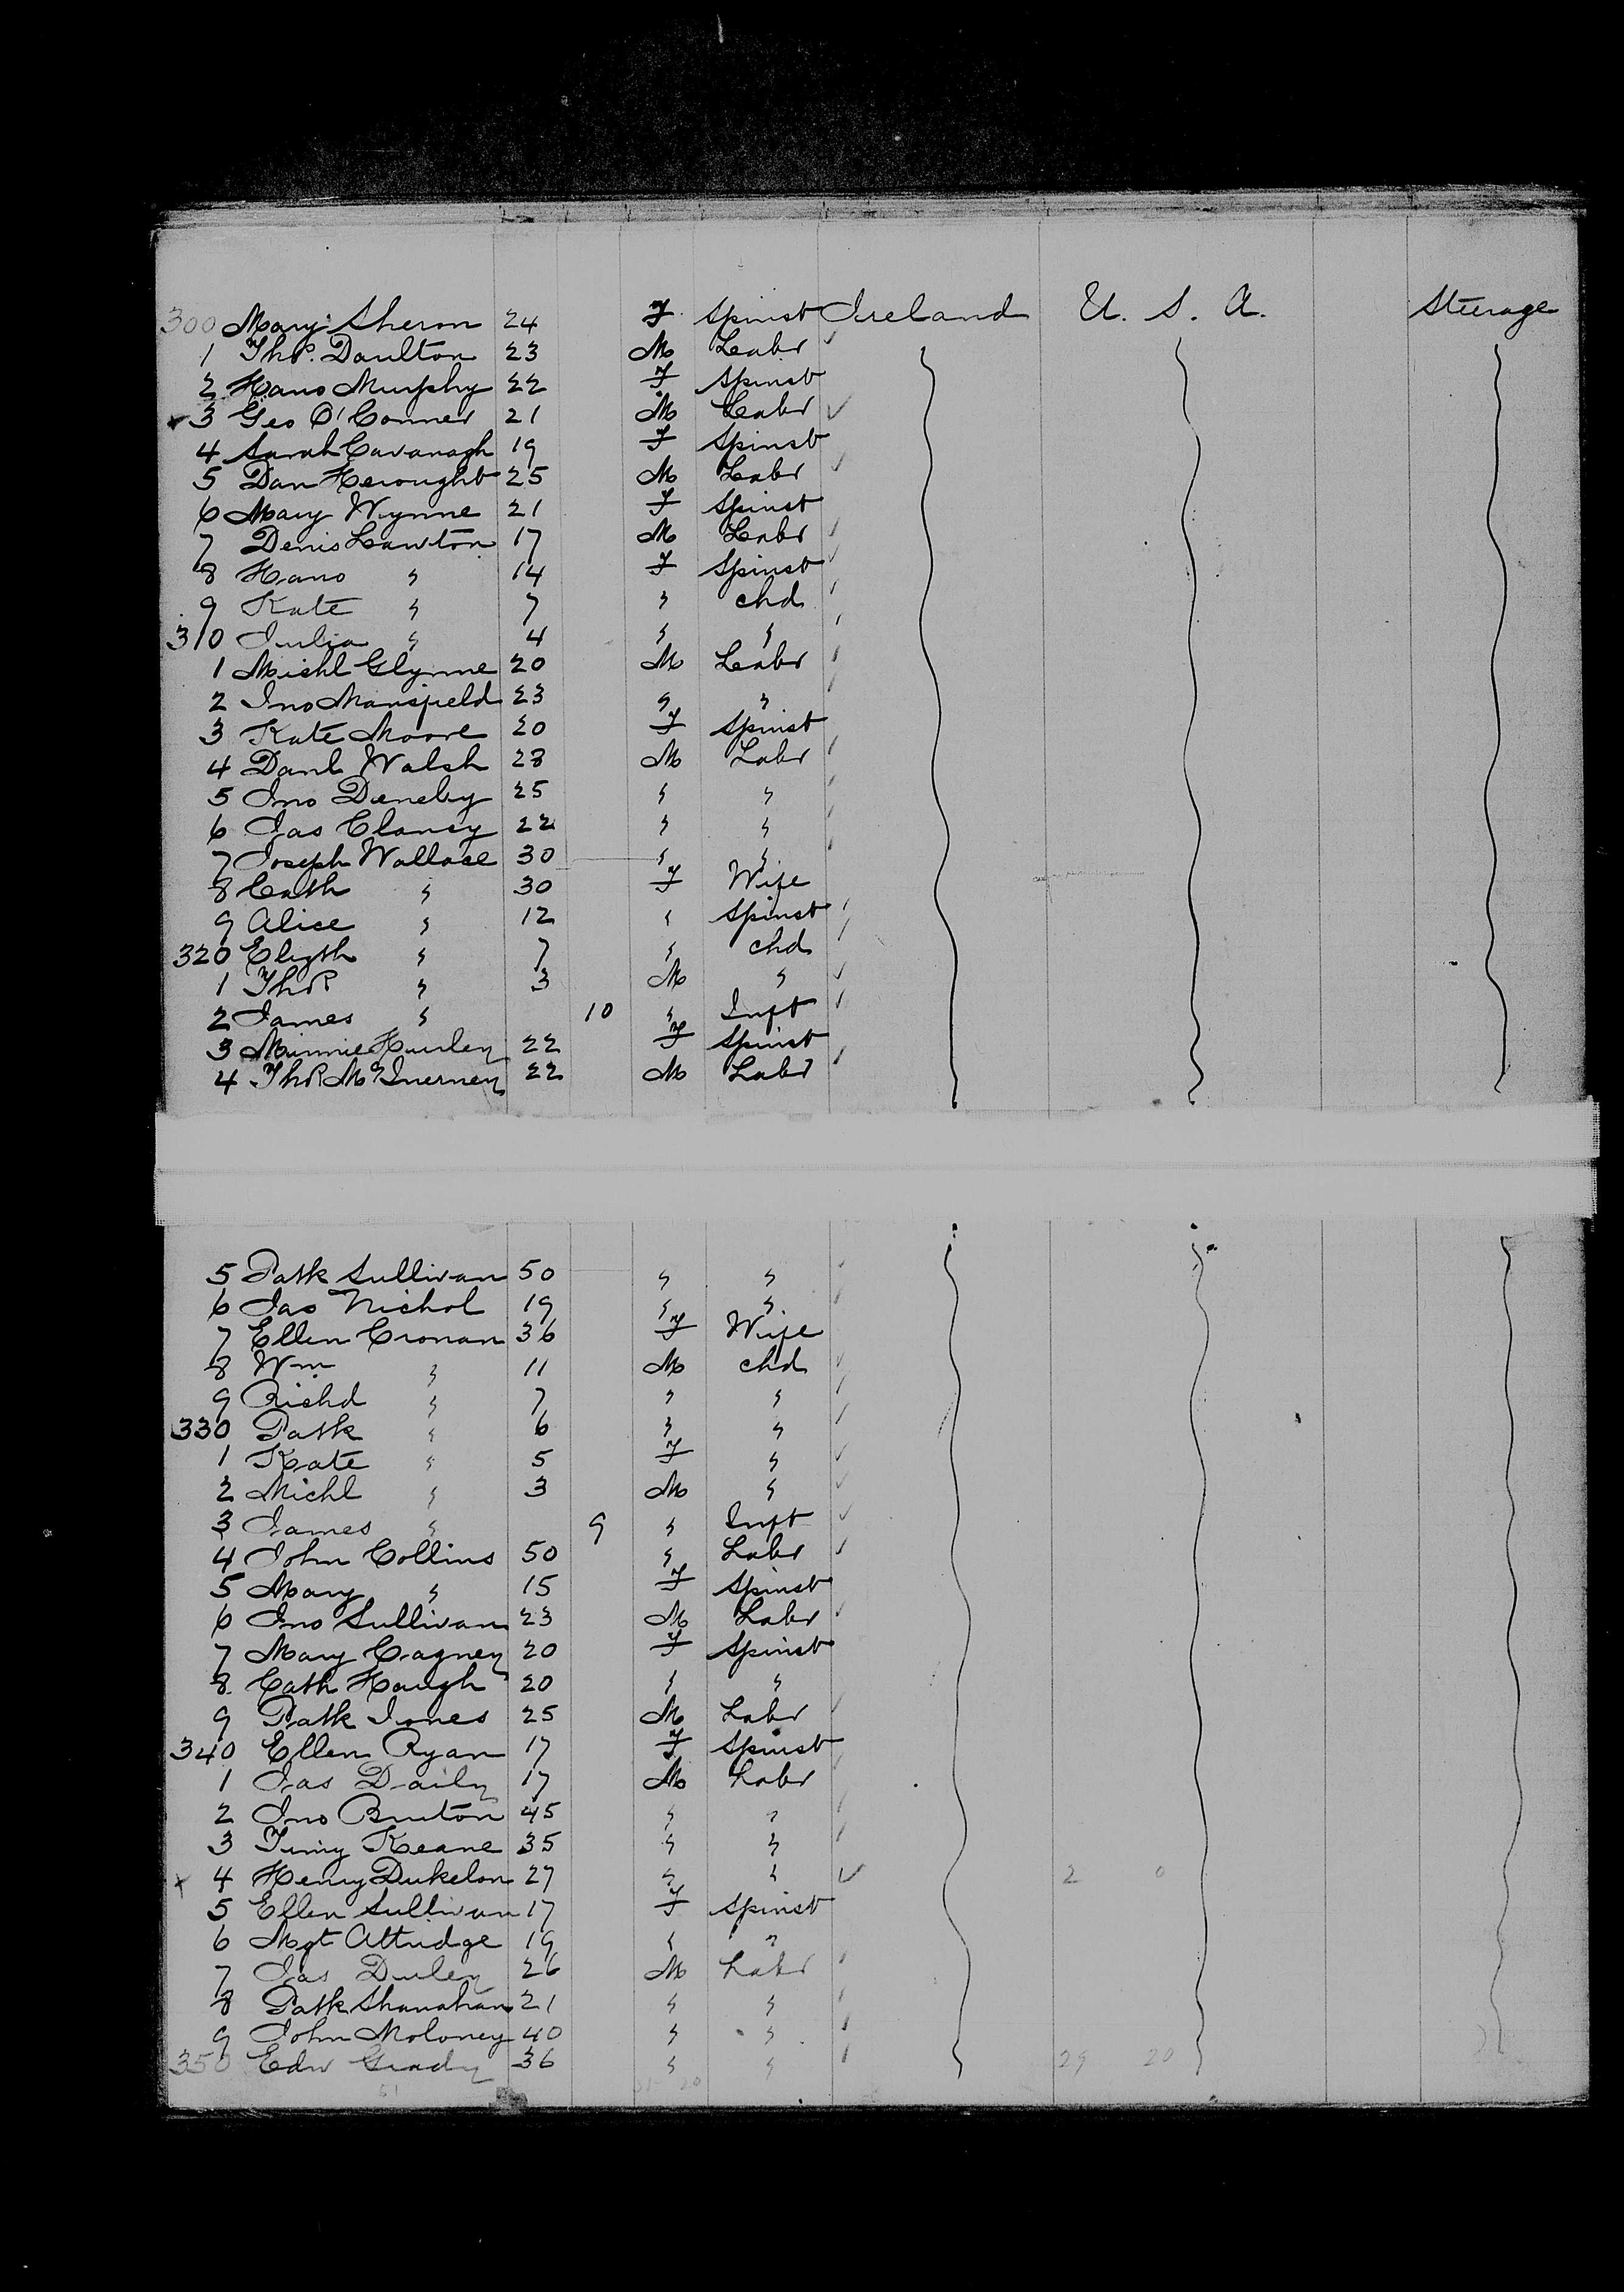 300 Mary Sheron 24 F Spinst Ireland U. S. A. Steerage
1 Thos. Daulton 23 M Labr
2 Hano Murphy 22 F Spinst
3 Geo O'Conner 21 M Labr
4 Sarah Cavanagh 19 F Spinst
5 Dan Herought 25 M Labr
6 Mary Wynne 21 F Spinst
7 Denis Lawton 17 M Labr
8 Hano " 14 F Spinst
9 Kate " 7 " chd
310 Julia " 4 " "
1 Michl Glynne 20 M Labr
2 Jno Mansfield 23 " "
3 Kate Moore 20 F Spinst
4 Danl Walsh 28 M Labr
5 Jno Denehy 25 " "
6 Jas Clancy 22 " "
7 Joseph Wallace 30 " "
8 Cath " 30 F Wife
9 Alice " 12 " Spinst
320 Elizth " 7 " chd
1 Thos " 3 M "
2 James " 10 " Inft
3 Minnie Hurley 22 F Spinst
4 Thos McInerney 22 M Labr
5 Patk Sullivan 50 " "
6 Jas Nichol 19 " "
7 Ellen Cronan 36 F Wife
8 Wm " 11 M chd
9 Richd " 7 " "
330 Patk " 6 " "
1 Kate " 5 F "
2 Michl " 3 M "
3 James " 9 " Inft
4 John Collins 50 " Labr
5 Mary " 15 F Spinst
6 Jno Sullivan 23 M Labr
7 Mary Cagney 20 F Spinst
8 Cath Haugh 20 " "
9 Patk Jones 25 M Labr
340 Ellen Ryan 17 F Spinst
1 Jas Daily 17 M Labr
2 Jno Bruton 45 " "
3 Timy Keane 35 " "
4 Henry Dukelon 27 " " 2 0
5 Ellen Sullivan 17 F Spinst
6 Mgt Attridge 19 " "
7 Jas Durley 26 M Labr
8 Patk Shanahan 21 " "
9 John Moloney 40 " "
350 Edw Grady 36 " " 29 20
51